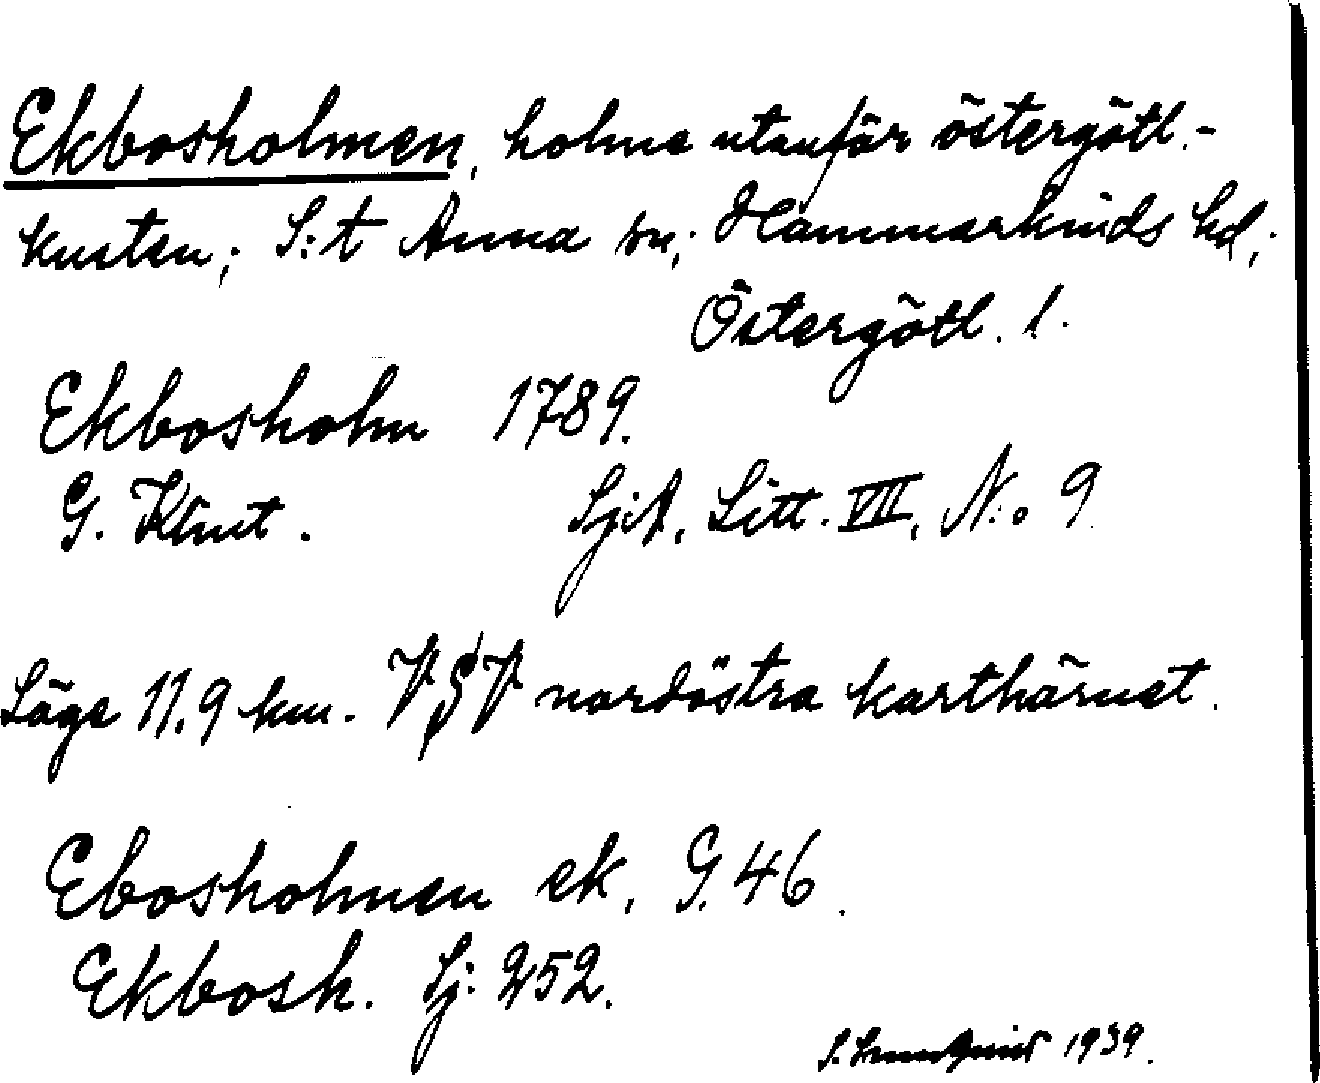 Ekbosholmen, holme utanför östergötl.-
kusten; S:t Anna sn; Hammarkinds hd,
Östergötl. l.
Ekbosholm 1789.
G. Klint. SjA, Litt. VII, No 9
Läge 11.9 km. VSV nordöstra karthörnet.
Ebosholmen ek. G. 46.
Ekbosh. Sj: 252.
1939.